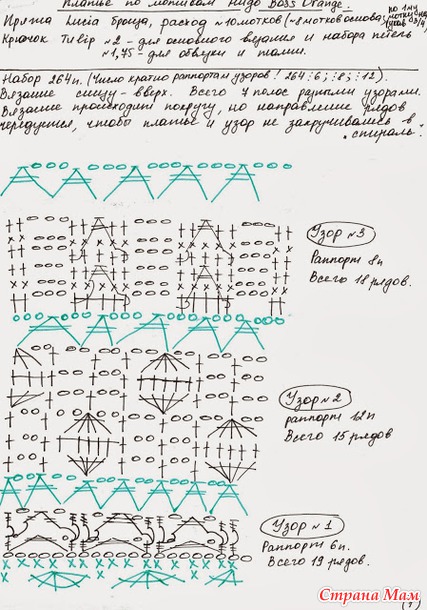 Платье по мотивам Hugo Boss Orange.
Пряжа Lucia Броща, расход ≈10 мотков (≈8 мотков основа
Крючок Tulip №2 - для основного вязания и набора петель
№1,75 - для обвязки и талии.
Набор 264п. (Число кратно раппортам узоров! 264:6; :8; :12).
Вязание снизу-вверх. Всего 7 полос разными узорами.
Вязание происходит по кругу, но направление рядов
чередуется, чтобы платье и узор не закручивались в
спираль.
Узор №3
Раппорт 8п
Всего 18 рядов.
Узор №2
раппорт 12п
Всего 15 рядов
Узор №1
Раппорт 6п.
Всего 19 рядов.
(1)
Страна Мам